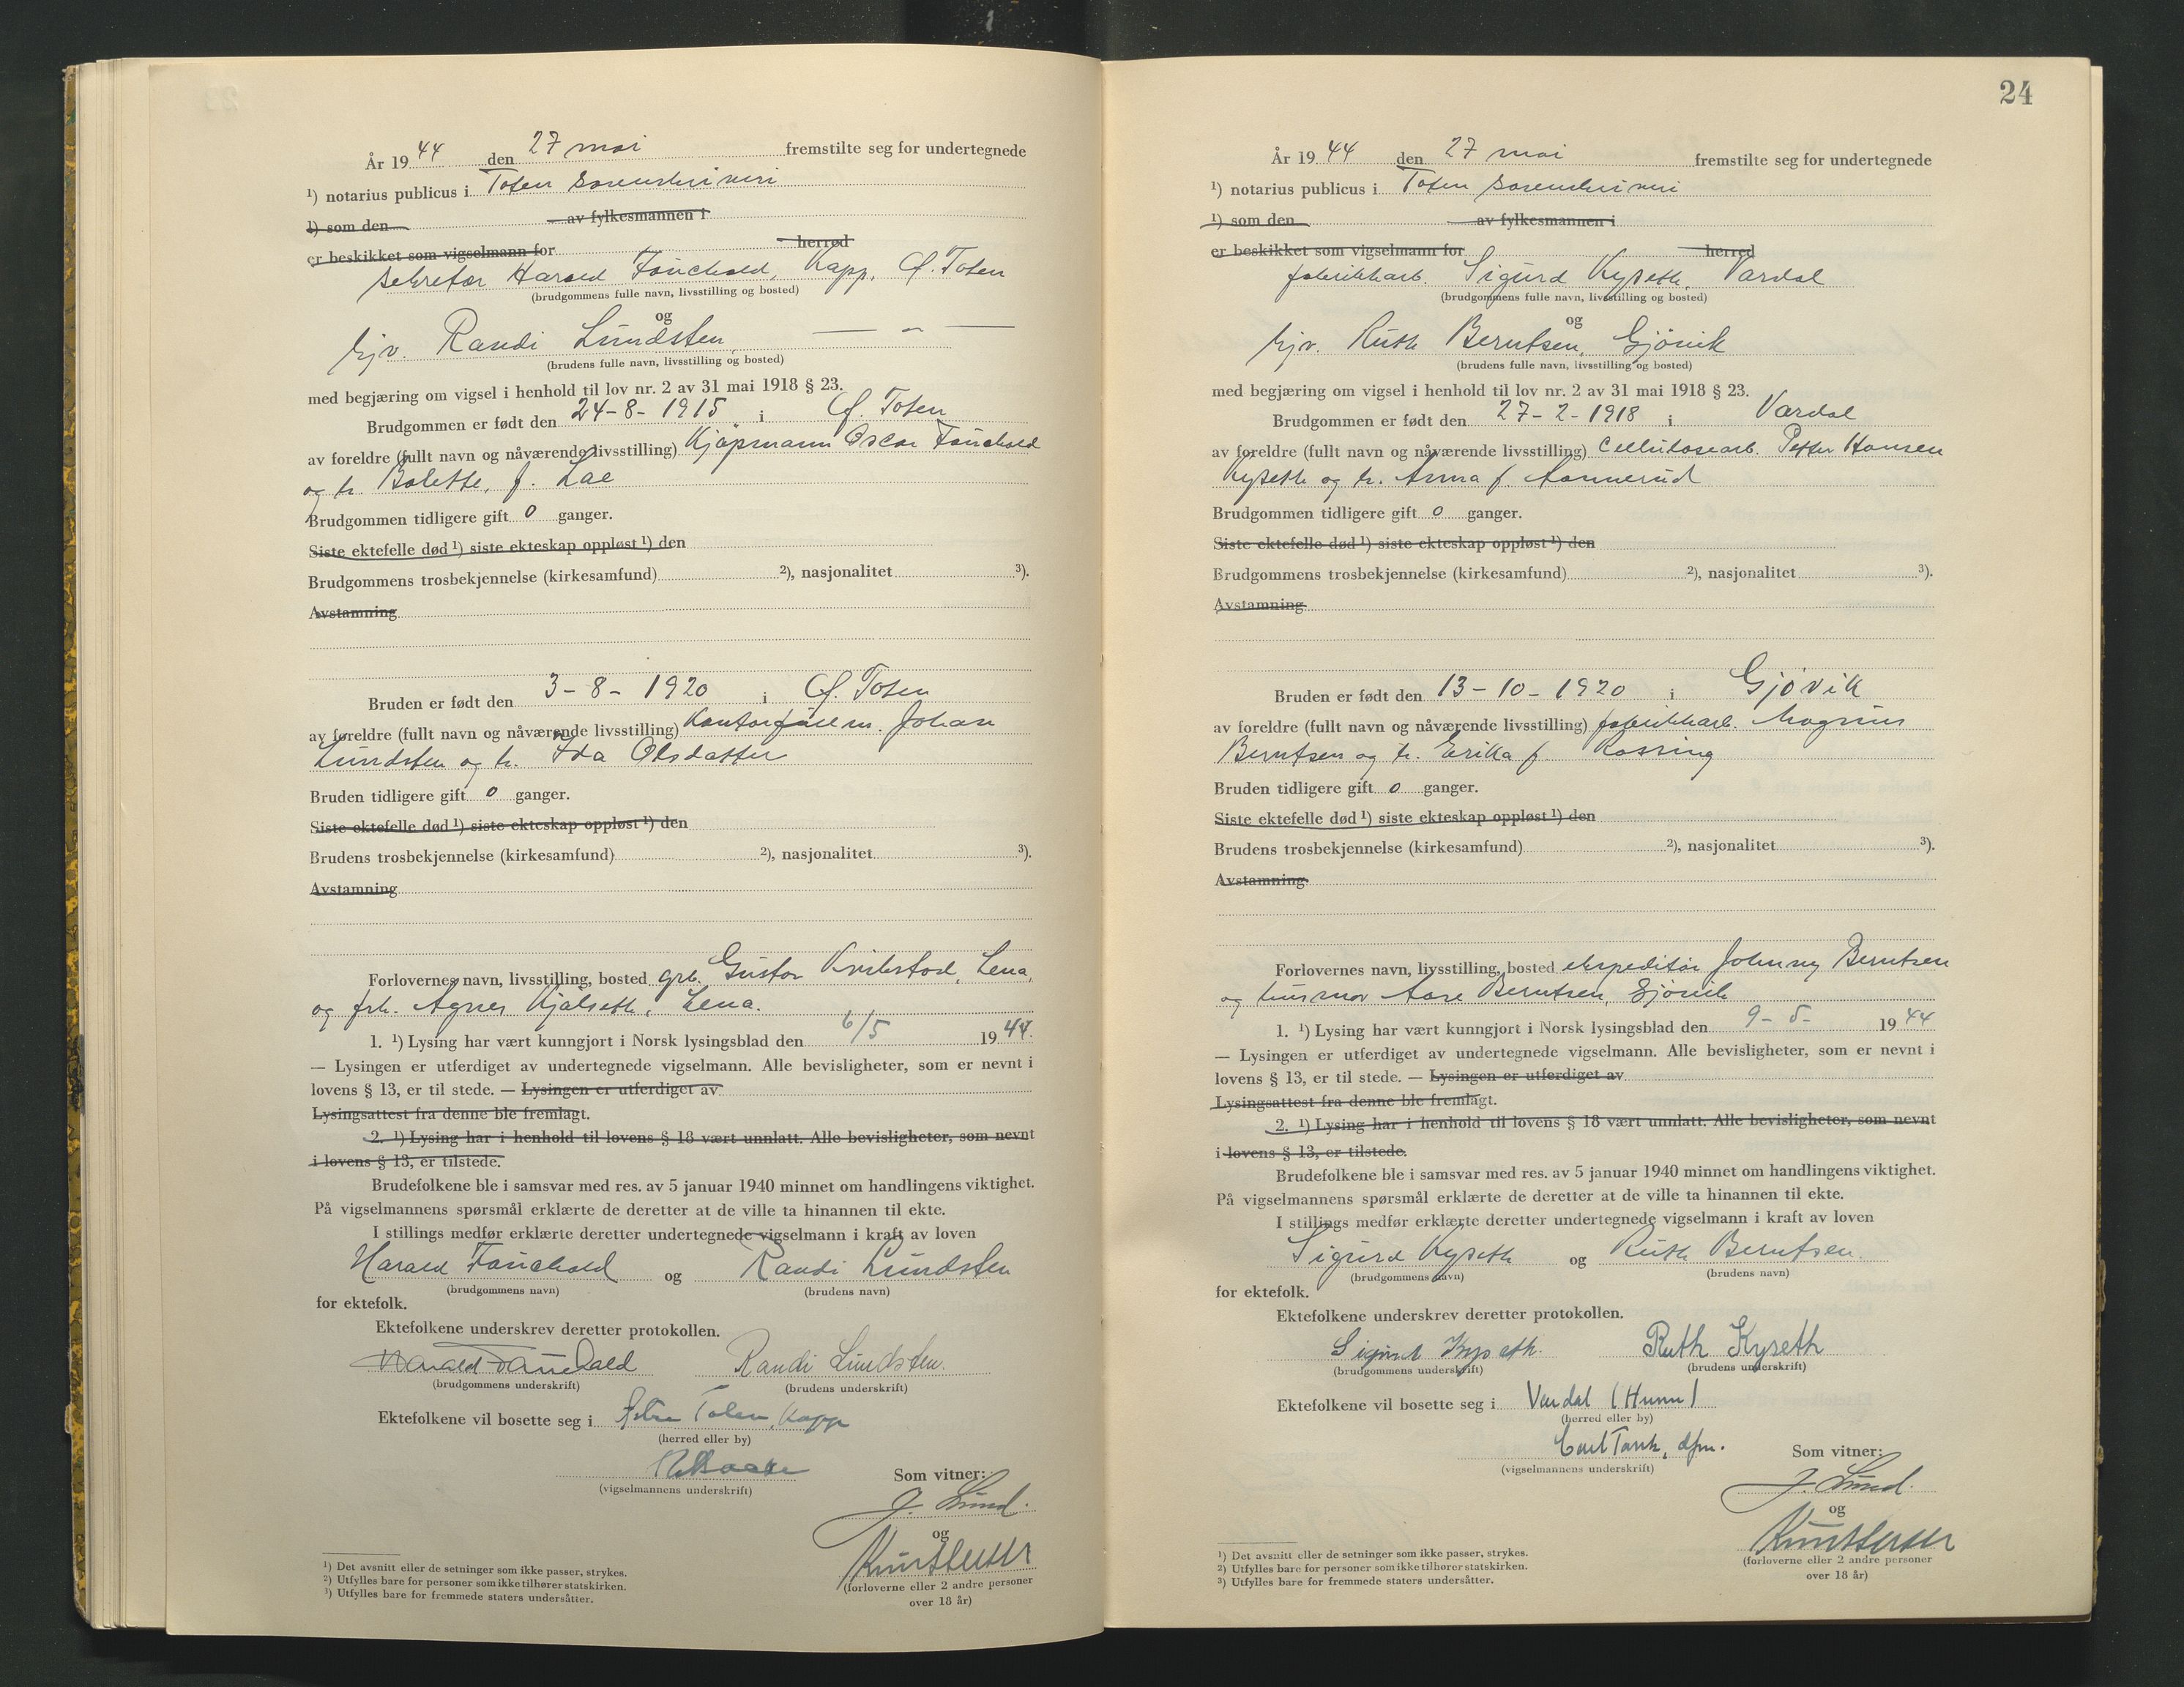 År 1944 den 27 mai fremstilte seg for undertegnede
¹) notarius publicus i Toten sorenskriveri
¹) som den av fylkesmannen i
er beskikket som vigselmann for herred
sekretær Harald Fauchald, Kapp, Ø. Toten
(brudgommens fulle navn, livsstilling og bosted)
og
hjv. Randi Lundsten, — " —
(brudens fulle navn, livsstilling og bosted)
med begjæring om vigsel i henhold til lov nr. 2 av 31 mai 1918 § 23.
Brudgommen er født den 24-8-1915 i Ø. Toten
av foreldre (fullt navn og nåværende livsstilling) Kjøpmann Oscar Fauchald
og h. Bolette, f. Lae
Brudgommen tidligere gift 0 ganger.
Siste ektefelle død ¹) siste ekteskap oppløst ¹) den
Brudgommens trosbekjennelse (kirkesamfund) ²), nasjonalitet ³).
Avstamning
Bruden er født den 3-8-1920 i Ø. Toten
av foreldre (fullt navn og nåværende livsstilling) Kontorfullm. Johan
Lundsten og h. Ida Olsdatter
Bruden tidligere gift 0 ganger.
Siste ektefelle død ¹) siste ekteskap oppløst ¹) den
Brudens trosbekjennelse (kirkesamfund) ²), nasjonalitet ³).
Avstamning
Forlovernes navn, livsstilling, bosted grb. Gustav Kvikstad, Lena,
og frk. Agnes Kjølseth, Lena.
1. ¹) Lysing har vært kunngjort i Norsk lysingsblad den 6/5 1944.
— Lysingen er utferdiget av undertegnede vigselmann. Alle bevisligheter, som er nevnt i
lovens § 13, er til stede. — Lysingen er utferdiget av
Lysingsattest fra denne ble fremlagt.
2. ¹) Lysing har i henhold til lovens § 18 vært unnlatt. Alle bevisligheter, som nevnt
i lovens § 13, er tilstede.
Brudefolkene ble i samsvar med res. av 5 januar 1940 minnet om handlingens viktighet.
På vigselmannens spørsmål erklærte de deretter at de ville ta hinannen til ekte.
I stillings medfør erklærte deretter undertegnede vigselmann i kraft av loven
Harald Fauchald og Randi Lundsten
(brudgommens navn) (brudens navn)
for ektefolk.
Ektefolkene underskrev deretter protokollen.
Harald Fauchald Randi Lundsten.
(brudgommens underskrift) (brudens underskrift)
Ektefolkene vil bosette seg i Østre Toten, Kapp
(herred eller by)
(vigselmannens underskrift)
Som vitner:
J. Lund.
og
(forloverne eller 2 andre personer
over 18 år)
¹) Det avsnitt eller de setninger som ikke passer, strykes.
²) Utfylles bare for personer som ikke tilhører statskirken.
³) Utfylles bare for fremmede staters undersåtter.
24
År 1944 den 27 mai fremstilte seg for undertegnede
¹) notarius publicus i Toten sorenskriveri
¹) som den av fylkesmannen i
er beskikket som vigselmann for herred
fabrikkarb. Sigurd Kyseth, Vardal
(brudgommens fulle navn, livsstilling og bosted)
og
hjv. Ruth Berntsen, Gjövik
(brudens fulle navn, livsstilling og bosted)
med begjæring om vigsel i henhold til lov nr. 2 av 31 mai 1918 § 23.
Brudgommen er født den 27-2-1918 i Vardal
av foreldre (fullt navn og nåværende livsstilling) Cellulosearb. Petter Hansen
Kyseth og h. Anna f. Aannerud
Brudgommen tidligere gift 0 ganger.
Siste ektefelle død ¹) siste ekteskap oppløst ¹) den
Brudgommens trosbekjennelse (kirkesamfund) ²), nasjonalitet ³).
Avstamning
Bruden er født den 13-10-1920 i Gjøvik
av foreldre (fullt navn og nåværende livsstilling) fabrikkarb. Magnus
Berntsen og h. Erikka f. Rossing
Bruden tidligere gift 0 ganger.
Siste ektefelle død ¹) siste ekteskap oppløst ¹) den
Brudens trosbekjennelse (kirkesamfund) ²), nasjonalitet ³).
Avstamning
Forlovernes navn, livsstilling, bosted ekspeditør Johnny Berntsen
og husmor Aase Berntsen, Gjövik
1. ¹) Lysing har vært kunngjort i Norsk lysingsblad den 9-5- 1944
— Lysingen er utferdiget av undertegnede vigselmann. Alle bevisligheter, som er nevnt i
lovens § 13, er til stede. — Lysingen er utferdiget av
Lysingsattest fra denne ble fremlagt.
2. ¹) Lysing har i henhold til lovens § 18 vært unnlatt. Alle bevisligheter, som nevnt
i lovens § 13, er tilstede.
Brudefolkene ble i samsvar med res. av 5 januar 1940 minnet om handlingens viktighet.
På vigselmannens spørsmål erklærte de deretter at de ville ta hinannen til ekte.
I stillings medfør erklærte deretter undertegnede vigselmann i kraft av loven
Sigurd Kyseth og Ruth Berntsen.
(brudgommens navn) (brudens navn)
for ektefolk.
Ektefolkene underskrev deretter protokollen.
Sigurd Kyseth. Ruth Kyseth
(brudgommens underskrift) (brudens underskrift)
Ektefolkene vil bosette seg i Vardal (Hunn)
(herred eller by)
Carl Tank, dfm.
(vigselmannens underskrift)
Som vitner:
J. Lund.
og
(forloverne eller 2 andre personer
over 18 år)
¹) Det avsnitt eller de setninger som ikke passer, strykes.
²) Utfylles bare for personer som ikke tilhører statskirken.
³) Utfylles bare for fremmede staters undersåtter.